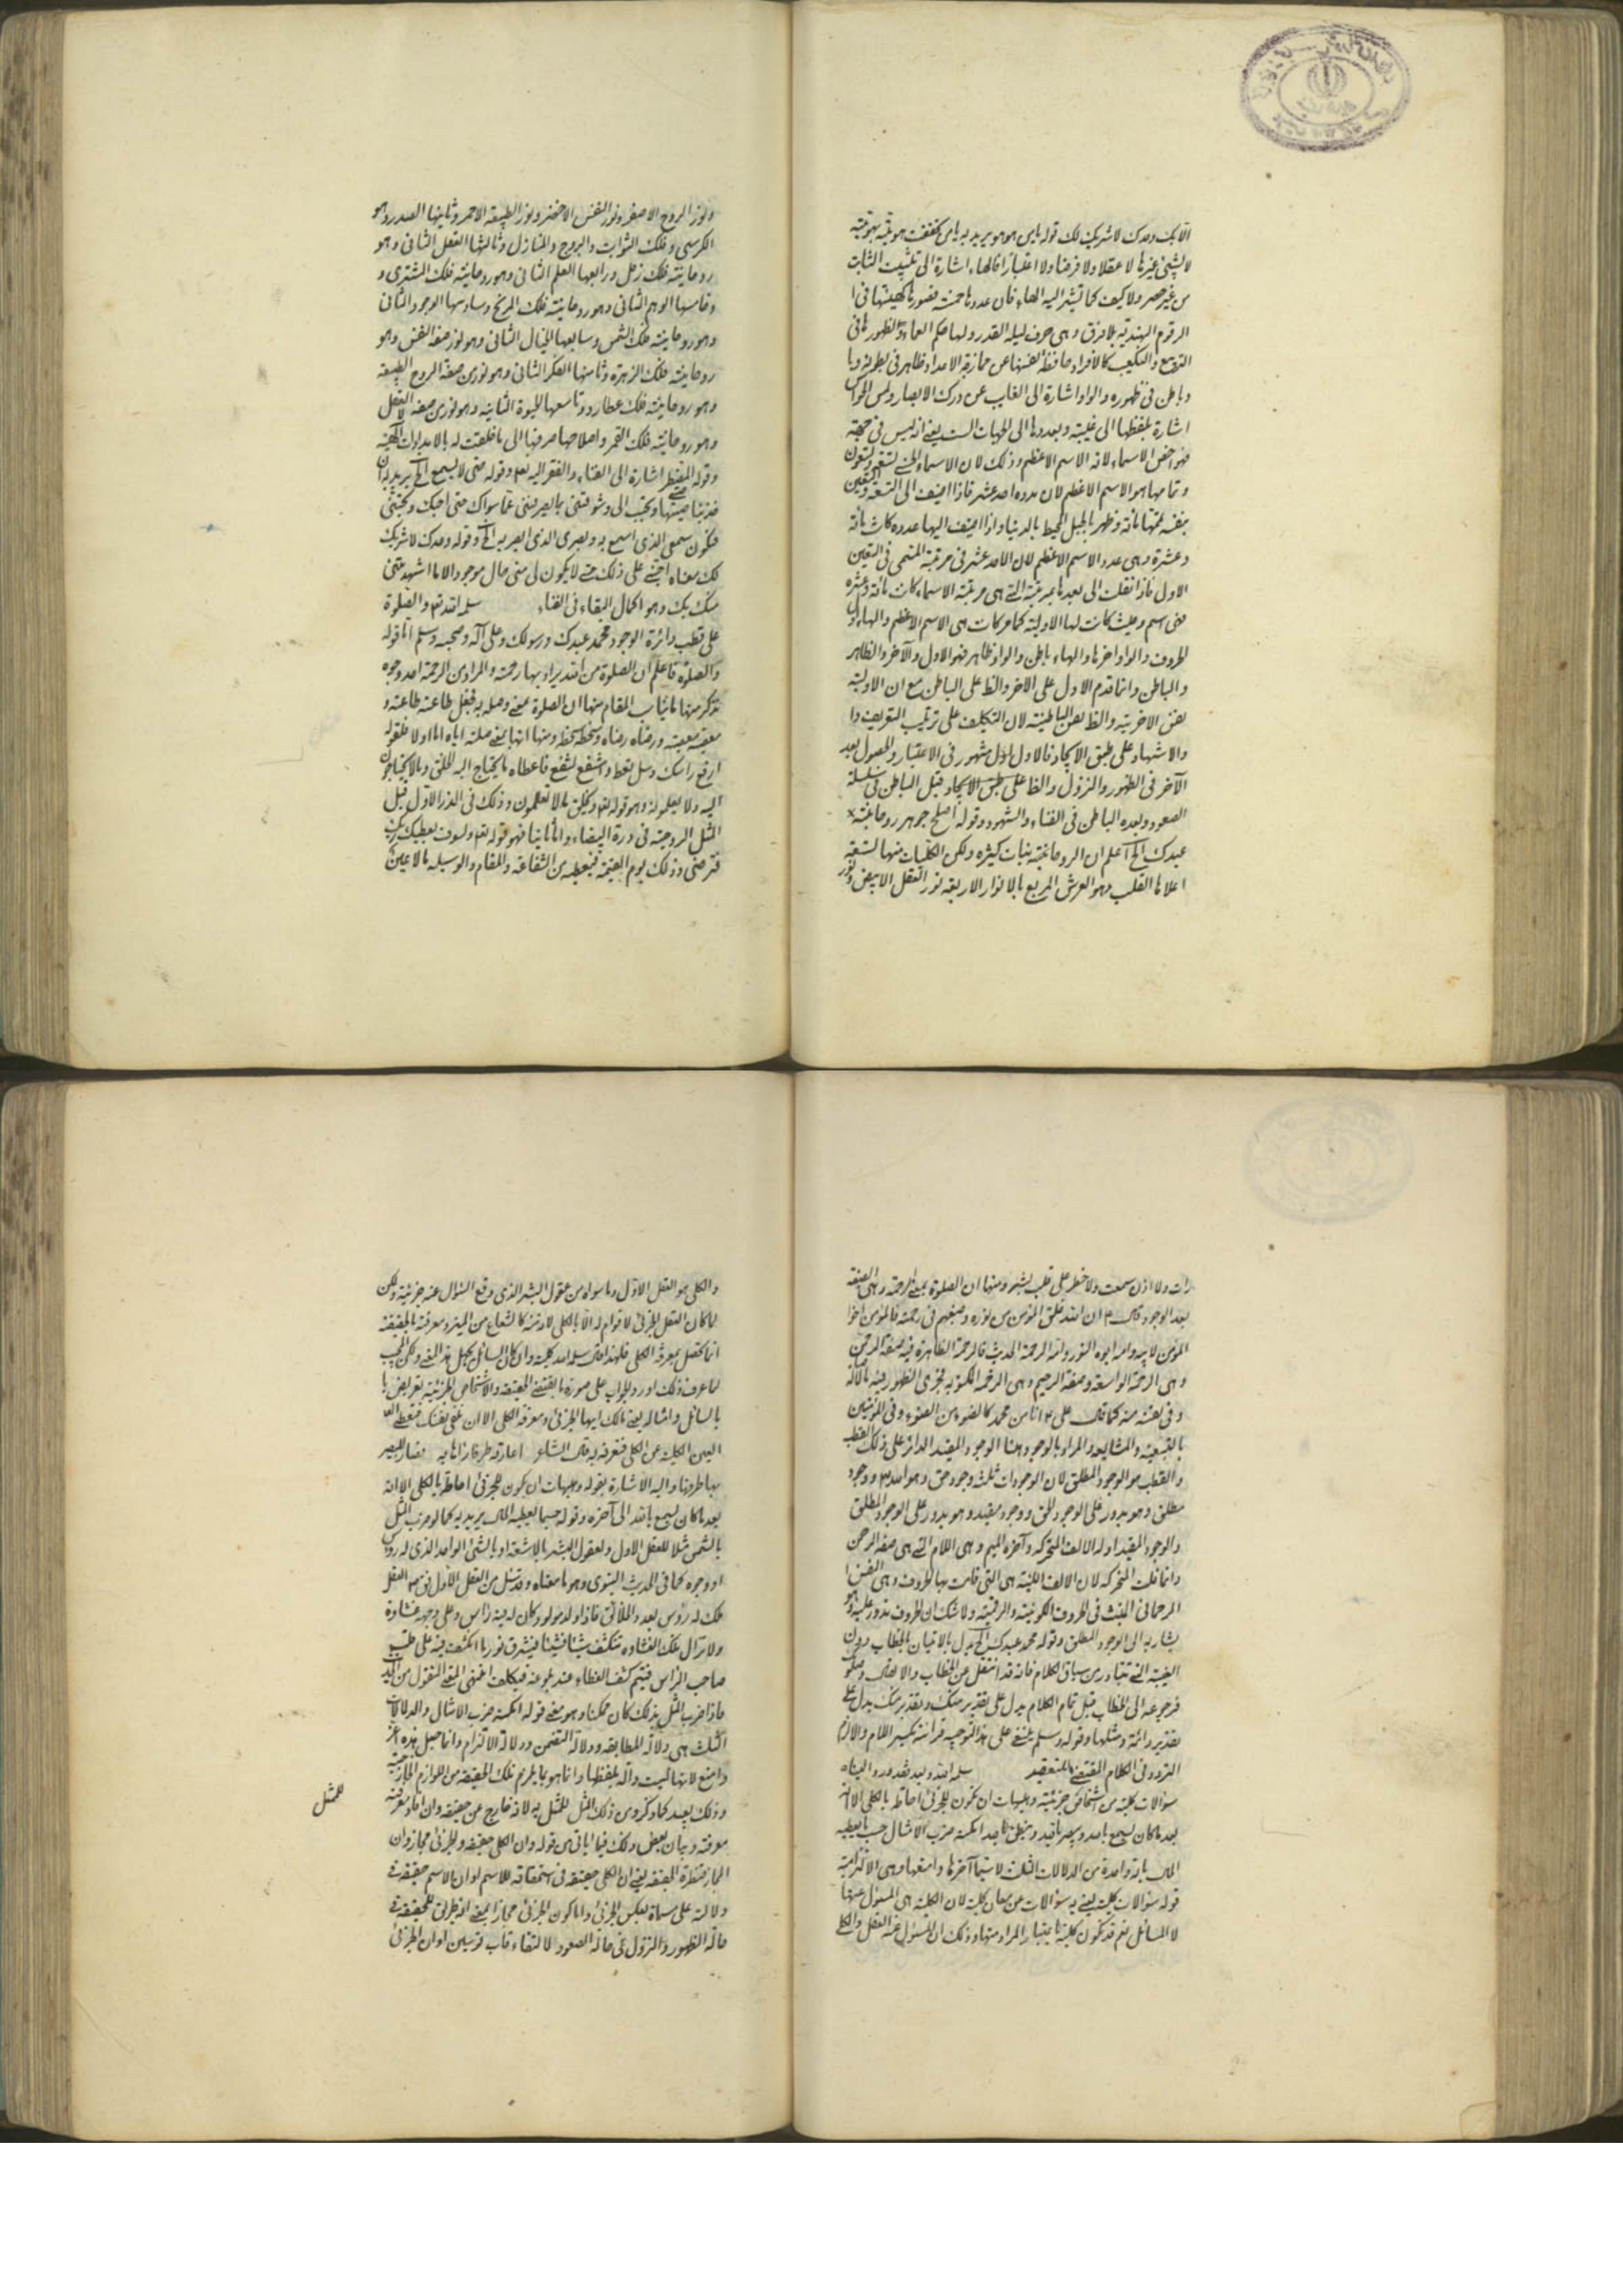 الا بك وحدك لا شريك لك قوله يا من هو هو يريد به يا من تحققت هويته بهويته
لا بشئ غيرها لا عقلا ولا فرضا ولا اعتبارا فالهاء اشارة الى تثبيت الثابت
من غير حصر ولا كيف كما تشير اليه الهاء فان عددها خمسة فصورتها كهيئتها في
الرقوم الهندية بلا فرق وهي حرف ليلة القدر ولها حكم العماء والظهور لها في
التربيع والتكعيب كالافراد حافظة نفسها عن ممازجة الاعداد ظاهر في بطونه
وباطن في ظهوره والواو اشارة الى الغايب عن درك الابصار ولمس الحواس
اشارة بلفظها الى غيبته وبعددها الى الجهات الست يعني انه ليس في جهة
فهو اخص الاسماء لانه الاسم الاعظم وذلك لان الاسماء الحسنى تسعة وتسعون
وتمامها هو الاسم الاعظم لان عدده احد عشر فاذا اضيف الى التسعة والتسعين
بنفسه تمتها مائة وظهر بالجبل المحيط بالدنيا واذا اضيف اليها عدده كانت مائة
وعشرة وهي عدد الاسم الاعظم لان الاحد عشر في مرتبة
الاول فاذا نقلت الى بعدها بمرتبة التي هي مرتبة الاسماء كانت مائة وعشرة
فهي اسم وحيث كانت لها الاولية كما مر كانت هي الاسم الاعظم والهاء اول
الحروف والواو اخرها والهاء باطن والواو ظاهر فهو الاول والآخر والظاهر
والباطن وانما قدم الاول على الاخر والظ على الباطن مع ان الاولية
نفس الاخرية والظ نفس الباطنية لان التكليف على ترتيب التعريف
والاشهاد على طبق الايجاد فالاول اول مشهور في الاعتبار والحصول بعد
الآخر في الظهور والنزول والظ على طبق الايجاد قبل الباطن في سلسلة
الصعود وبعده الباطن في الفناء والشهود وقوله اصلح جوهر روحانية
عبدك الخ اعلم ان الروحانية بنيات كثيره ولكن الكليات منها تسعة
اعلاها القلب وهو العرش المربع بالانوار الاربعة نور العقل الابيض
ونور الروح الاصفر ونور النفس الاخضر ونور الطبيعة الاحمر وثانيها الصدر وهو
الكرسي وفلك الثوابت والبروج والمنازل وثالثها العقل الثاني وهو
روحانية فلك زحل ورابعها العلم الثاني وهو روحانية فلك المشترى و
وخامسها الوهم الثاني وهو روحانية فلك المريخ وسادسها الوجود الثاني
وهو روحانية فلك الشمس وسابعها الخيال الثاني وهو نور من صفة النفس وهو
روحانية فلك الزهرة وثامنها الفكر الثاني وهو نور من صفة الروح الطبيعة
وهو روحانية فلك عطارد وتاسعها الحيوة الثانية وهو نور من صفة العقل
وهو روحانية فلك القمر واصلاحها صرفها الى ما خلقت له بالامدادات الالهية
وقوله المفتقر اشارة الى الفناء والفقر اليه تعالى وقوله حتى لا يسمع الخ يريد به ان
وتحبب الى وشوقني بما يصرفني عما سواك حتى احبك وتحبني
فتكون سمعي الذي اسمع به وبصري الذي ابصر به الخ وقوله وحدك لا شريك
لك معناه اجتنى على ذلك حتى لا يكون لي منى حال موجود الا ما اشهدتني
منك بك وهو اكمال البقاء في الفناء سلمه الله تعالى والصلوة
على قطب دائرة الوجود محمد عبدك ورسولك وعلى آله وصحبه وسلم اما قوله
والصلوة فاعلم ان الصلوة من الله يراد بها رحمته والمراد من الرحمة احد وجوه
نذكر منها ما يناسب المقام منها ان الصلوة بمعنى وصله به فجعل طاعته طاعته و
معصيته معصيته ورضاه رضاه وسخطه سخطه ومنها انها بمعنى صلته اياه اما اولا فلقوله
ارفع راسك وسل تعط واشفع تشفع فاعطاه ما يحتاج اليه الخلق وما لا يحتاجون
اليه ولا يعلمونه وهو قوله تعالى ويخلق ما لا تعلمون وذلك في الذر الاول قبل
المثل الروحية في درة البيضاء واما ثانيا فهو قوله تعالى ولسوف يعطيك ربك
فترضى وذلك يوم القيمة فيعطيه من الشفاعة والمقام والوسيلة ما لا عين
رات ولا اذن سمعت ولا خطر على قلب بشر ومنها ان الصلوة بمعنى الرحمة وهي الصفة
بعد الوجود قال ان الله خلق المؤمن من نوره وصبغهم في رحمته فالمؤمن اخو
المؤمن لابيه وامه ابوه النور وامه الرحمة الحديث فالرحمة الظاهرة فيه صفة الرحمن
وهي الرحمة الواسعة وصفة الرحيم وهي الرحمة المكتوبة فجرى الظهور فيه بالآله
وفي نفسه منه كما قال على انا من محمد كالضوء من الضوء وفي المؤمنين
بالتبعية والمشايعة والمراد بالوجود هنا الوجود المقيد الدائر على ذلك القطب
والقطب هو الوجود المطلق لان الوجودات ثلثة وجود حق وهو الله ووجود
مطلق وهو يدور على الوجود الحق ووجود مقيد وهو يدور على الوجود المطلق
والوجود المقيد اوله الالف المتحركة وآخره الميم وهي اللام التي هي صفة الرحمن
وانما قلت المتحركة لان الالف اللينة هي التي قامت بها الحروف وهي النفس
الرحماني المنبث في الحروف الكونية والرقمية ولا شك ان الحروف تدور عليه وهو
يشار به الى الوجود المطلق وقوله محمد عبدك الخ يدل بالاتيان بالخطاب دون
الغيبة التي تتبادر من سياق الكلام فانه قد انتقل عن الخطاب والاتصال
فرجوعه الى الخطاب قبل تمام الكلام يدل على تقدير منك وبتقدير منك يدل على
تقدير دائمة ومثلها وقوله وسلم ينبغي على هذا التوجيه قراءته بكسر اللام والا لزم
التردد في الكلام المقتضي للتعقيد سلمه الله وبعد فقد ورد الينا
سؤالات كلية من اشخاص جزئية وهيهات ان تكون للجزئ احاطة بالكلي الا انه
بعد ما كان يسمع بالله ويبصر بالله وينطق بالله الكتمة ضرب الامثال حسب ما يعطيه
المال باية واحدة من الدلالات الثلث لا سيما آخرها وامنعها وهي الالتزامية
قوله سؤالات كلية يعني به سؤالات عن معان كلية لان الكلية هي المسئول عنها
لا المسائل نعم قد تكون كلية باعتبار المراد منها وذلك ان المسئول عنه العقل والكلي
والكلي هو العقل الاول وما سواه من عقول البشر الذي وقع السؤال عنه جزئية ولكن
لما كان العقل الجزئي لا قوام له الا بالكلي لانه منه كالشعاع من المنير ومعرفته بالحقيقة
انما تحصل بمعرفة الكلي فلهذا قال سلمه الله كلية وان كان السائل يجهل هذا المعنى ولكن المجيب
لما عرف ذلك اورد الجواب على صورة ما يقتضيه الحقيقة والاشخاص الجزئية تعريض
بالسائل وامثاله يعني مالك ايها الجزئي ومعرفة الكلي الا ان تفنى نفسك فتعطى
العين الكلية من الكلي فتعرفه به قال الشاعر اعارته طرفا رآها به فصار البصير
بها طرفها واليه الاشارة بقوله وهيهات ان يكون للجزئي احاطة بالكلي الا انه
بعد ما كان يسمع بالله الى آخره وقوله حسبما يعطيه المال يريد به كما لو ضرب المثل
بالشمس مثلا للعقل الاول ولعقول البشر بالاشعة او بالشئ الواحد الذي له رؤس
او وجوه كما في الحديث النبوي وهو ما معناه وقد سئل من العقل الاول فى العقل
ملك له رؤس بعدد الخلائق فاذا ولد مولود كان له فيه راس وعلى وجهه غشاوة
ولا تزال تلك الغشاوة تنكشف شيئا فشيئا فيشرق نور ما انكشف فيه على قلب
صاحب الراس فيتم كشف الغطاء عند بلوغه فيكلف انتهى المعنى المنقول من الحديث
فاذا ضرب المثل بذلك كان ممكنا وهو معنى قوله الكتمة ضرب الامثال والدلالات
الثلث هي دلالة المطابقة ودلالة التضمن ودلالة الالتزام وانما جعل هذه اعز
وامنع لانها ليست دالة بلفظها وانما هو بما يلزم تلك الحقيقة من اللوازم الخارجية
وذلك بعيد كما لو ذكر وصف ذلك المثل للمثل به لانه خارج عن حقيقته وان افاد معرفته
للمثل
معرفته وبيان بعض ذلك فيما ياتي من قوله وان الكلي حقيقة والجزئي مجاز وان
المجاز قنطرة الحقيقة يعني ان الكلي حقيقة في استحقاقه للاسم لو ان الاسم حقيقة في
دلالته على مسماة بعكس الجزئي واما كون الجزئي مجازا يعني انه طريق للحقيقة في
حالة الظهور والنزول في حالة الصعود لالتقاء قاب قوسين او ان الجزئي